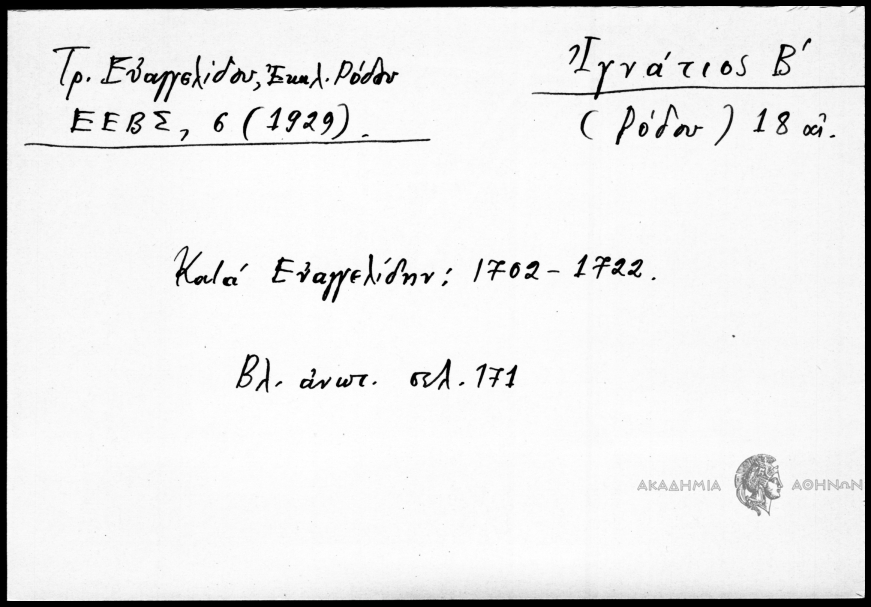 Τρ. Εὐαγγελίδου, Ἐκκλ. Ρόδου
ΕΕΒΣ, 6 (1929).
Ἰγνάτιος Β΄
(Ρόδου) 18 αἰ.
Κατά Εὐαγγελίδην: 1702-1722.
Βλ. ἀνωτ. σελ. 171
ΑΚΑΔΗΜΙΑ ΑΘΗΝΩΝ